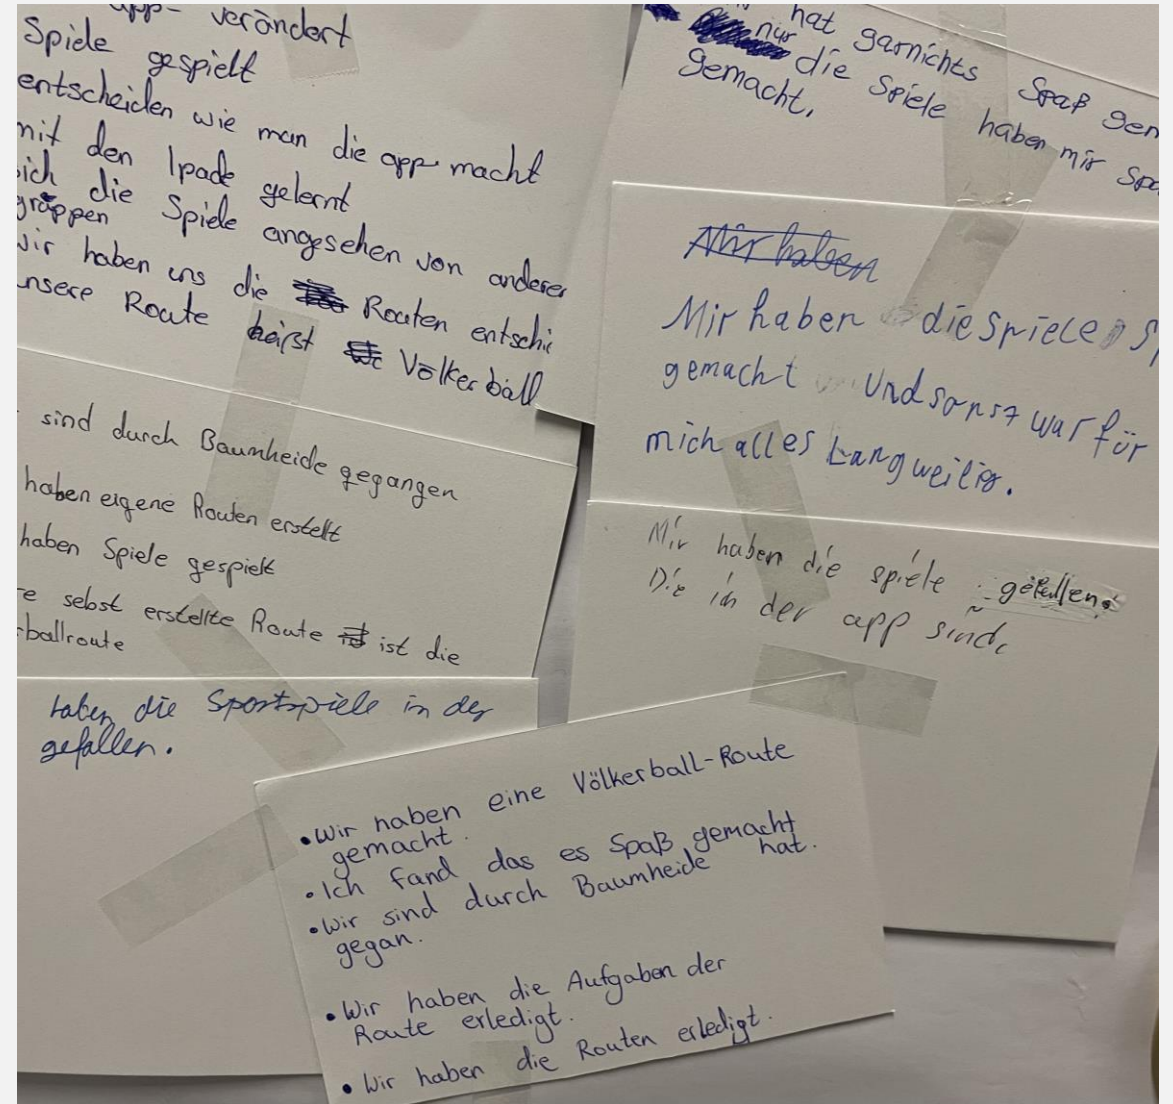 app- verändert
Spiele gespielt
entscheiden wie man die app macht
mit den Ipade gelernt
sich die Spiele angesehen von anderer
gruppen
wir haben uns die Routen entschi
unsere Route heist Völkerball
sind durch Baumheide gegangen
haben eigene Routen erstellt
haben Spiele gespielt
e selbst erstellte Route ist die
ballroute
haben die Sportspiele in der
gefallen.
hat garnichts Spaß gem
nur die Spiele haben mir Spa
gemacht.
Mir haben
Mir haben die Spiele S
gemacht Und sonst war für
mich alles Langweilig.
Mir haben die spiele gefallen.
Die in der app sind.
•Wir haben eine Völkerball-Route
gemacht.
•Ich fand das es Spaß gemacht
hat.
•Wir sind durch Baumheide
gegan.
•Wir haben die Aufgaben der
Route erledigt.
•Wir haben die Routen erledigt.